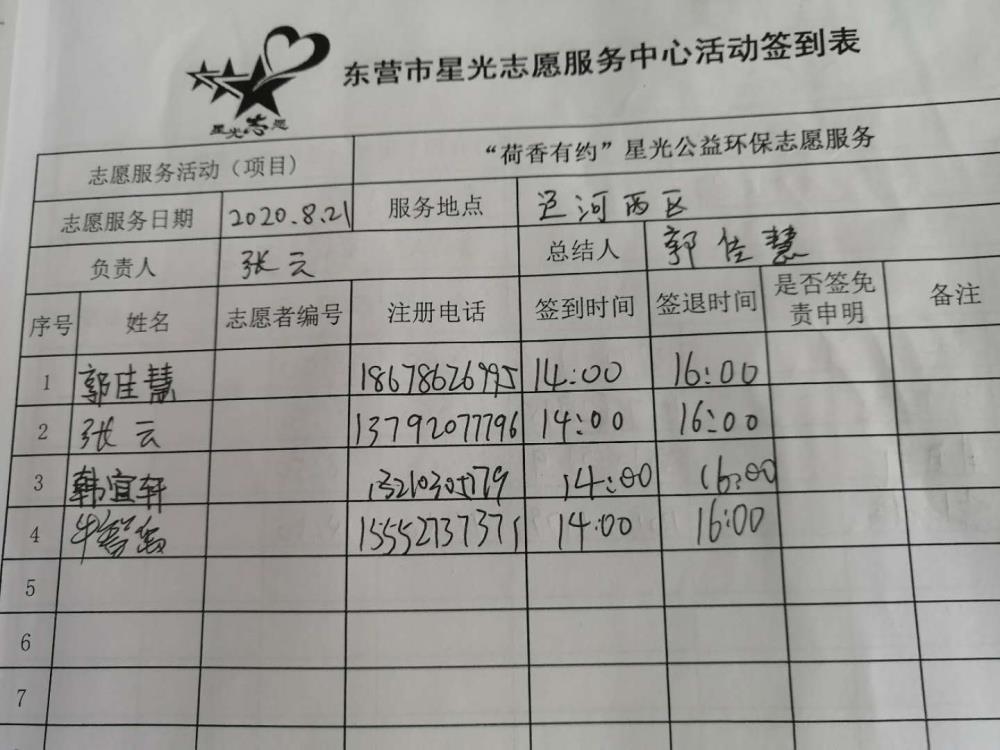 东营市星光志愿服务中心活动签到表
星光志愿
志愿服务活动（项目） “荷香有约”星光公益环保志愿服务
志愿服务日期 2020.8.21 服务地点 运河西区
负责人 张云 总结人 郭佳慧
序号 姓名 志愿者编号 注册电话 签到时间 签退时间 是否签免责申明 备注
1 郭佳慧 18678626995 14:00 16:00
2 张云 13792077796 14:00 16:00
3 韩宜轩 14:00 16:00
4 15552737371 14:00 16:00
5
6
7